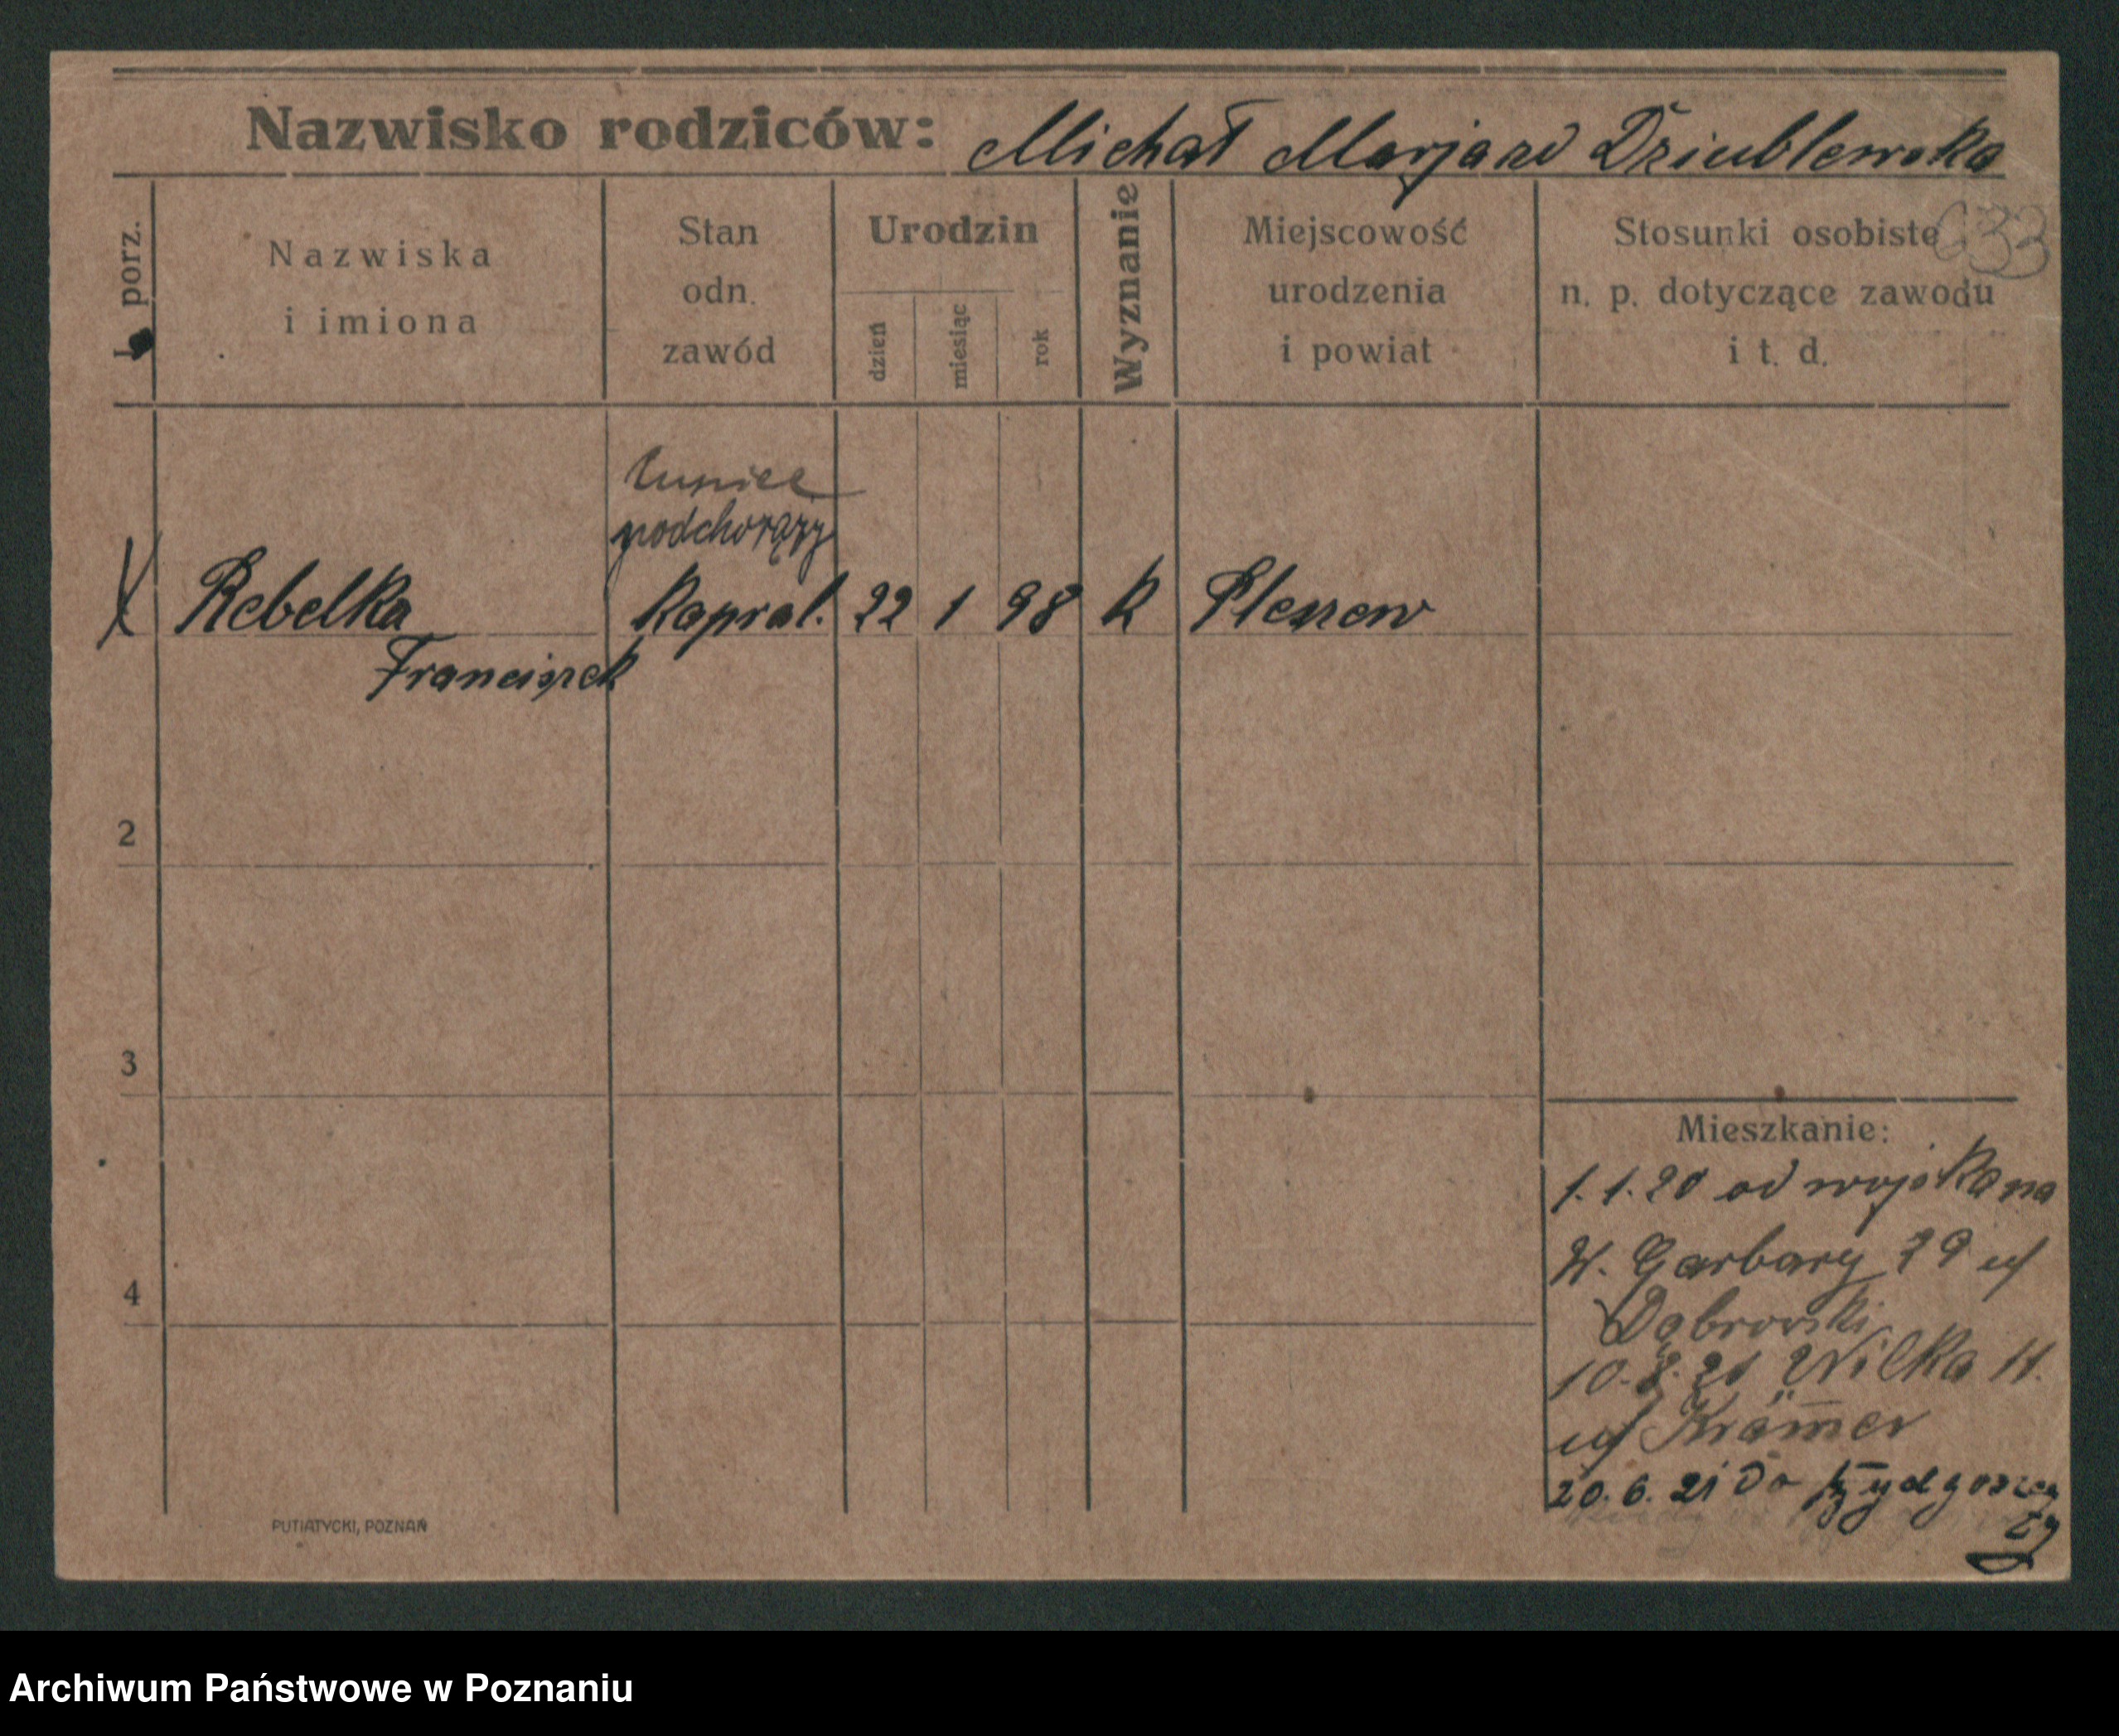 Nazwisko rodziców: Michał Marjand Dziublewska
L. porz.
Nazwiska
i imiona
Stan
odn.
zawód
Urodzin
dzień
miesiąc
rok
Wyznanie
Miejscowość
urodzenia
i powiat
Stosunki osobiste
n. p. dotyczące zawodu
i t. d.
633
kupiec
podchorąży
Rebelka Kapral. 22 1 98 K Pleszew
Franciszek
2
3
4
Mieszkanie:
1.1.20 od wojska na
W. Garbary 39 u/
Dąbrowski
10. 21 Wilka 11.
u/ Krämer
20.6.21 do Bydgoszczy
PUTIATYCKI, POZNAŃ
Archiwum Państwowe w Poznaniu